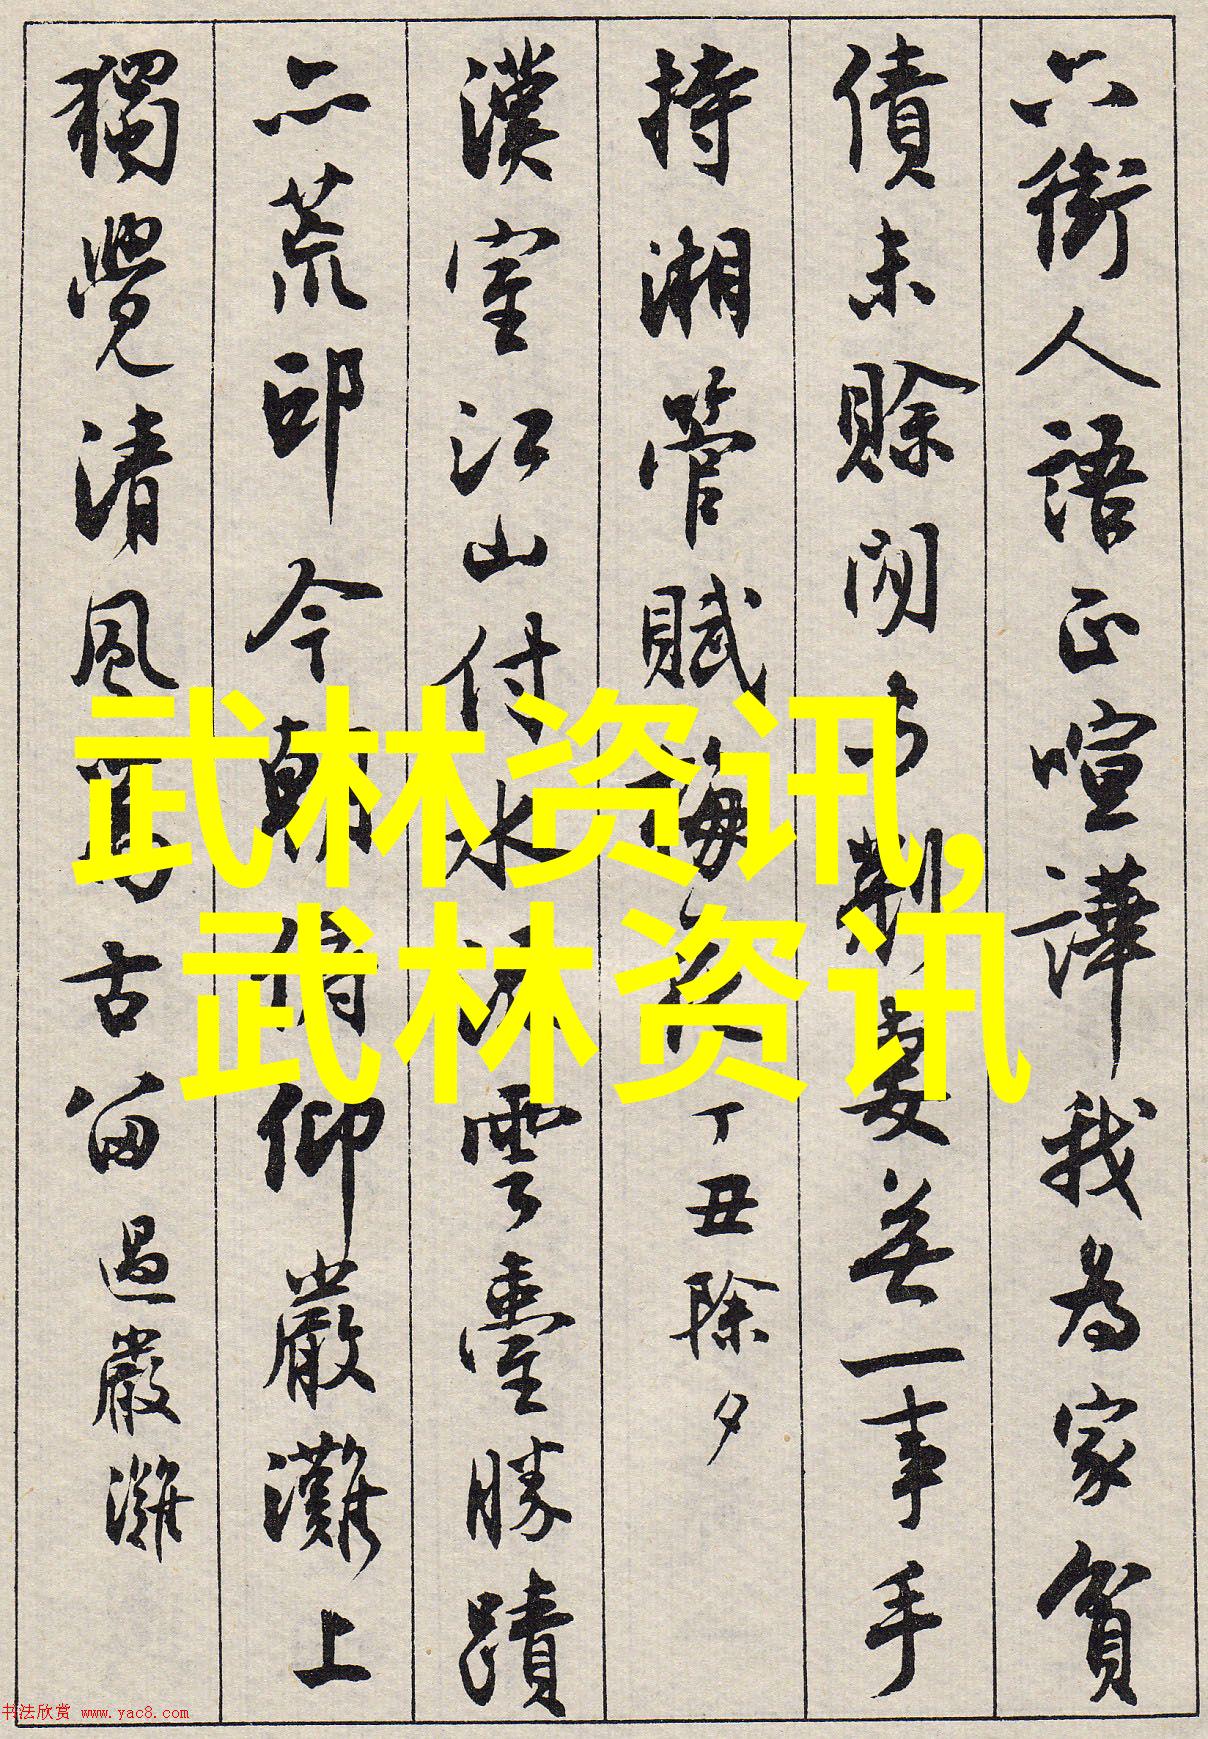 六街人語正喧譁我為家貧
債未賒閉
無一事手
持湘管賦梅花丁丑除夕
漢室江山付水
雲臺勝蹟
亦荒邱今朝得仰嚴灘上
獨覺清風
古留過嚴灘
武林资讯,
武林资讯
书法欣赏 www.yac8.com